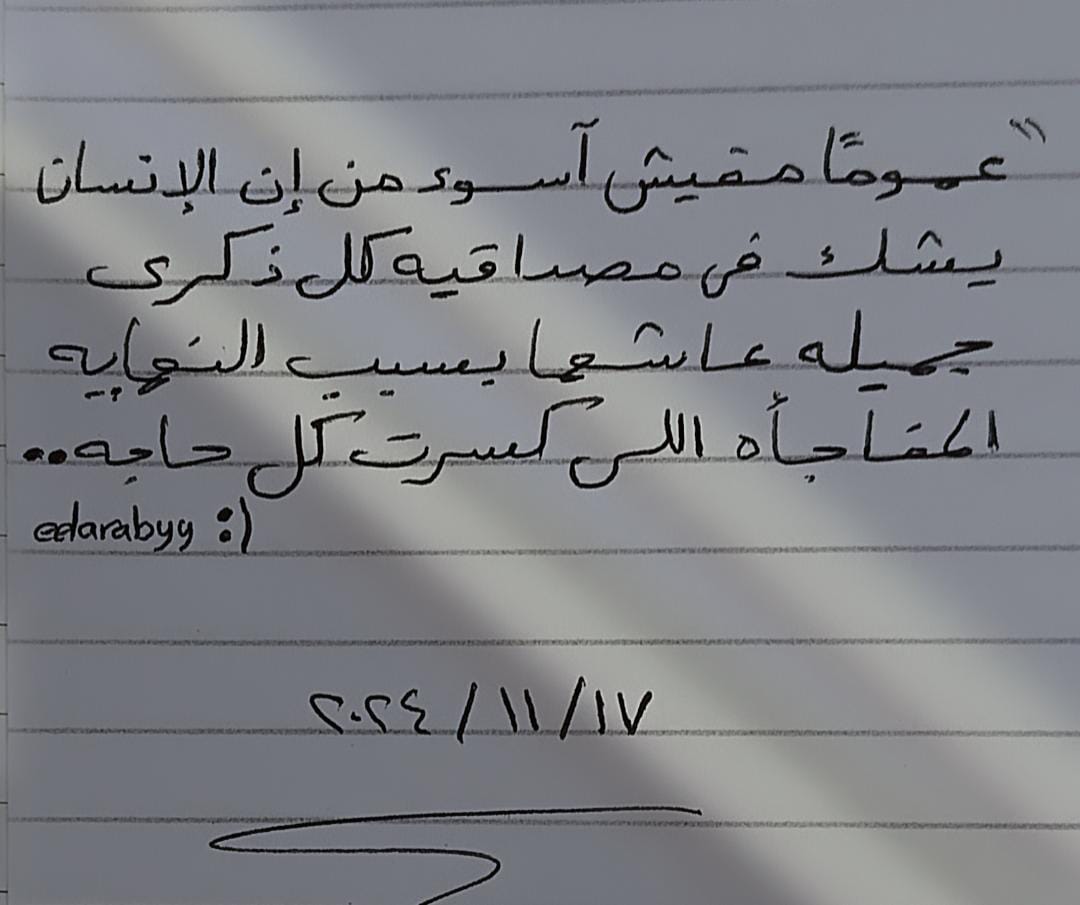 "عمومًا مفيش آسوء من إن الإنسان
يشك في مصداقيه كل ذكرى
جميله عاشها بسبب النهايه
المفاجأه اللي كسرت كل حاجه..
edarabyy :)
٢٠٢٤/١١/١٧